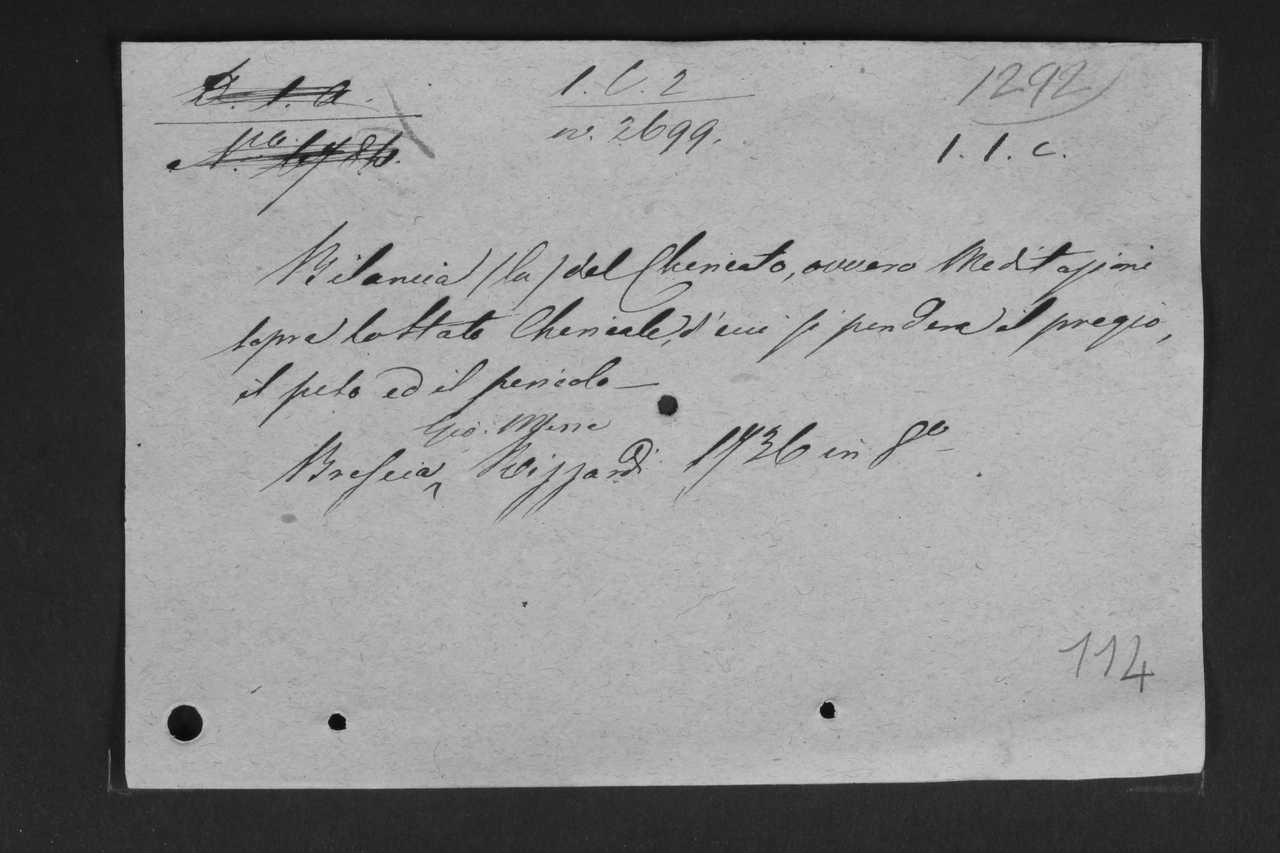 I. C. 2
1292
nr. 2699.
1. 1. c.
Bilancia (la) del Chericato, ovvero Meditazioni
sopra lo Stato Chericale, d'cui si pondera il pregio,
il peso ed il pericolo —
Gio. Maria
Brescia, Rizzardi 1736 in 8º
114